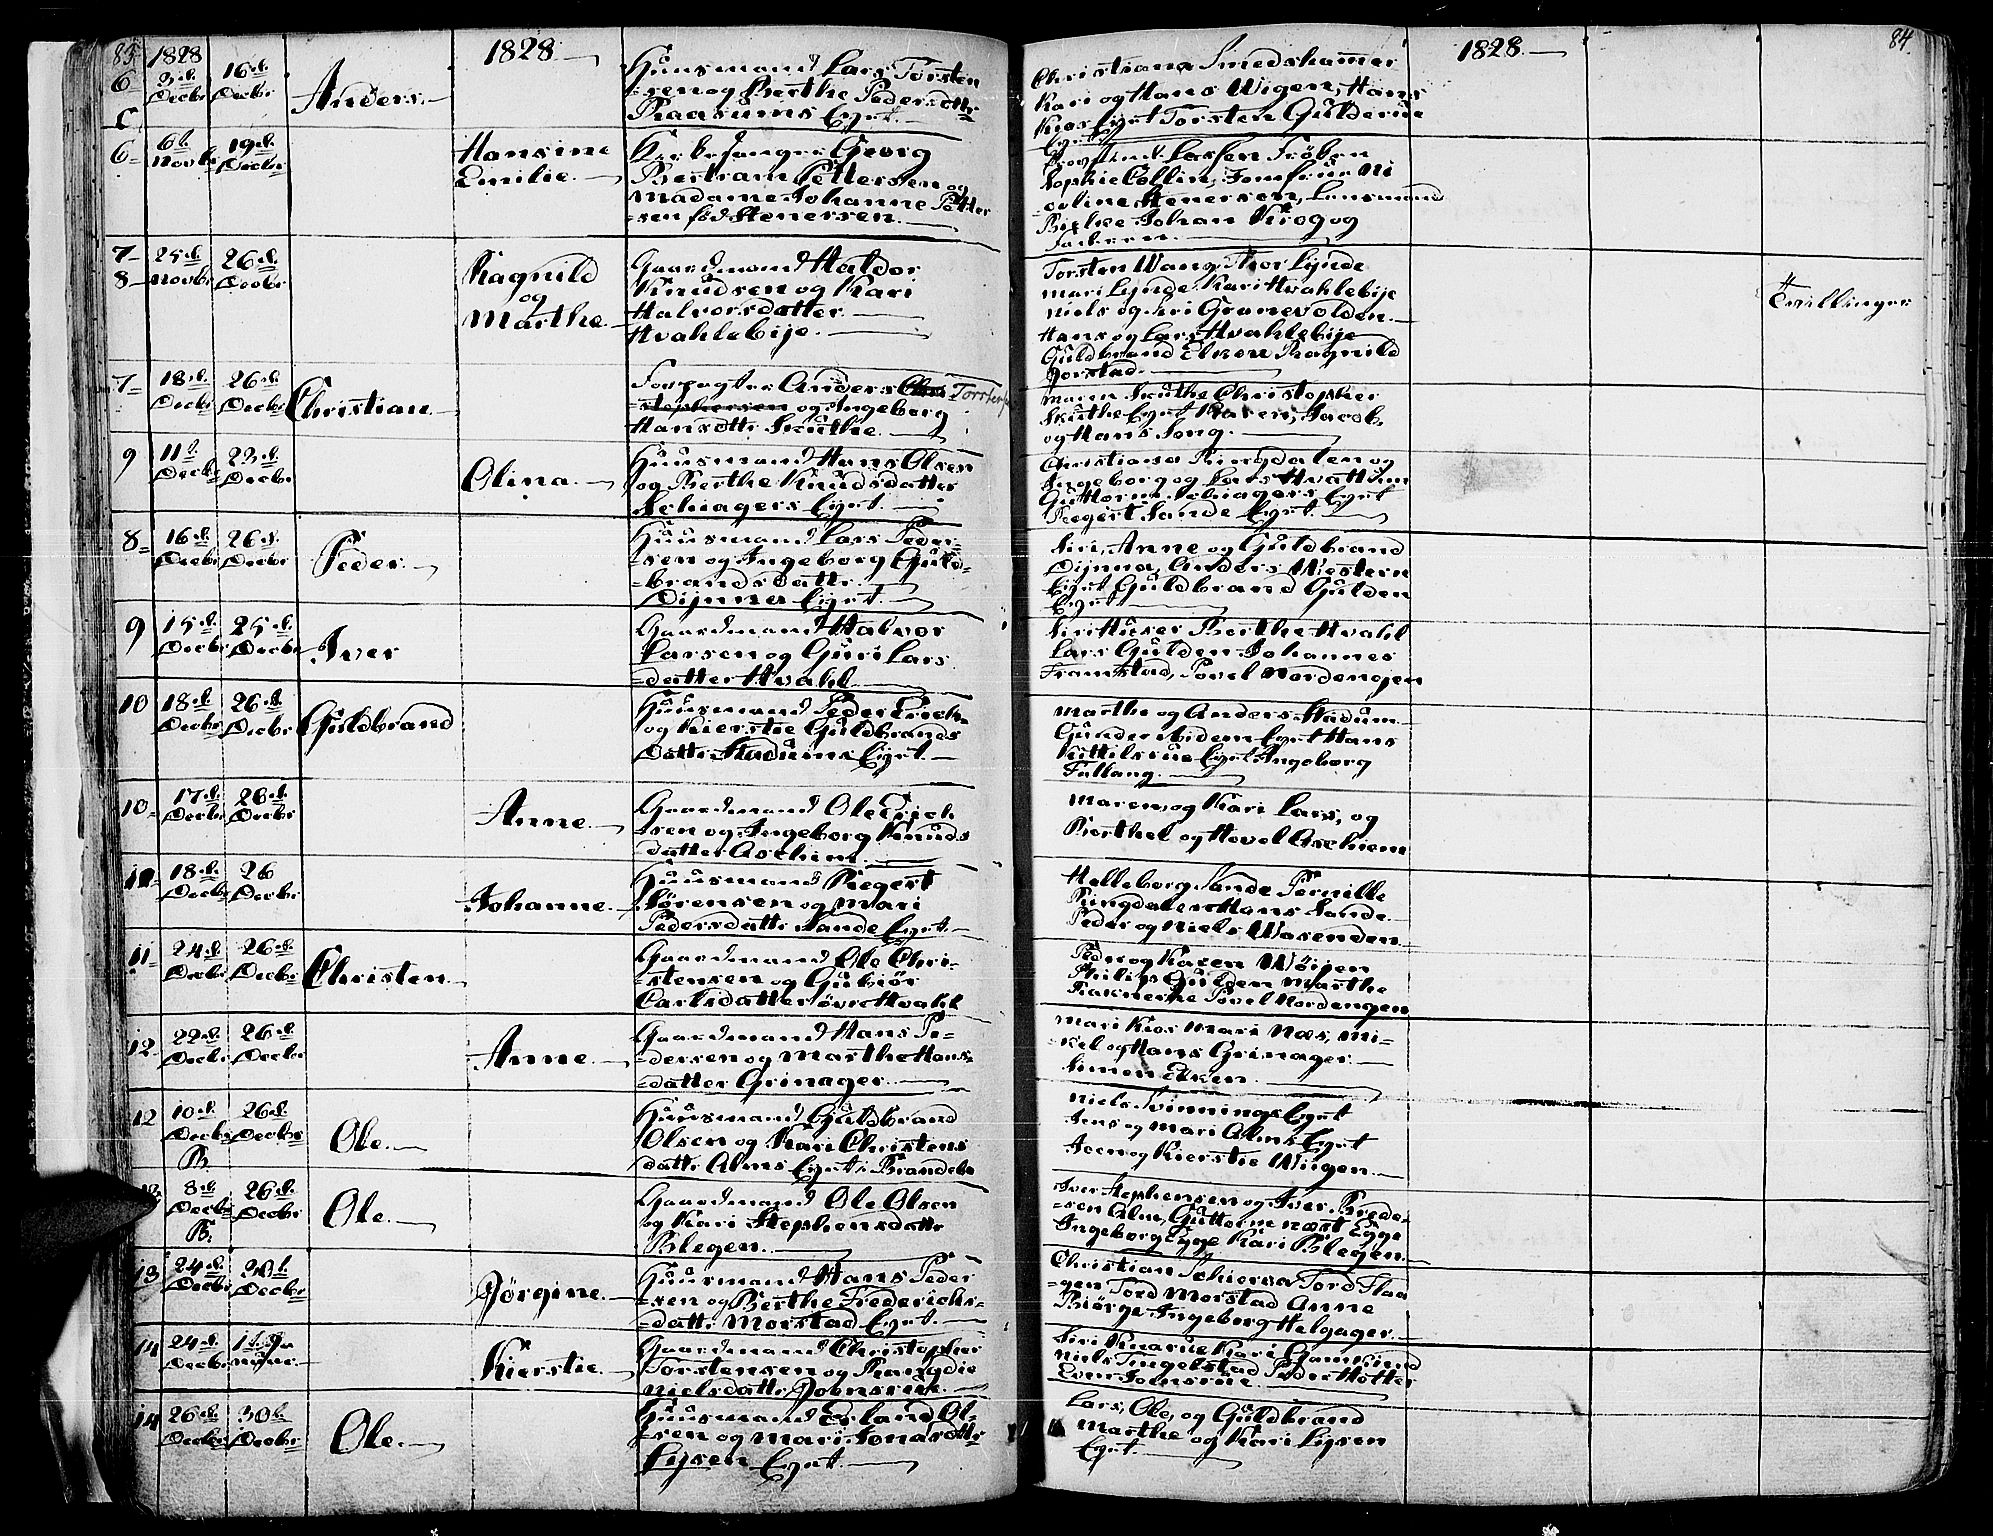 83. 1828 1828 1828 84.
6 3d. Decbr 16d. Decbr Anders
Huusmand Lars Torsten
=sen og Berthe Pedersdttr
Raasums Eyet.
Christiana Smedshammer
Kari og Hans Wigen, Hans
Kios Eyet Torsten Gulderud
Eyet
6 6t. Novbr 19d. Decbr Hansine
Emilie.
Kirkesanger Georg
Bertram Pettersen og
Madame Johanne Petter
=sen född Stenersen.
Provstinde Lassen Frøken
Sophie Collin, Jomfrue Ni
=coline Stenersen, Lensmand
Bielke Johan Krog og
Faderen.
7-
8- 25d. Novbr 26d. Decbr Ragnild
og
Marthe.
Gaardmand Haldor
Knudsen og Kari
Halvorsdatter
Hvahlebije.
Torsten Wang, Thor Lynde
Mari Lynde, Kari Hvahlebije
Niels og Siri Granevolden
Hans og Lars Hvahlebije
Guldbrand Elken Ragnild
Jorstad.
Tvillinger
7= 18d. Decbr 26d. Decbr Christian
Forpagter Anders Chri Torstensen
=stophersen og Ingeborg
Hansdttr Skuthe.
Maren Skuthe Christopher
Skuthe Eyet Karen, Jacob,
og Hans Song.
9 11t. Decbr 23d. Decbr Olina.
Huusmand Hans Olsen
og Berthe Knudsdatter
Schiagers Eyet.
Christiana Ringdalen og
Ingeborg og Lars Hvattum
Guttorm Schiagers Eyet
Regert Sande Eyet.
8= 16d. Decbr 26d. Decbr Peder.
Huusmand Lars Peder=
=sen og Ingeborg Guld=
=brandsdattr
Dijnna Eyet.
Siri, Anne og Guldbrand
Dijnna, Anders Western
Eyet Guldbrand Gulden
Eyet
9 15d. Decbr 25d. Decbr Iver
Gaardmand Halvor
Larsen og Guri Lars
=datter Hvahl
Siri Huser Berthe Hvahl
Lars Gulden Johannes
Framstad, Povel Nordengen
10 18d. Decbr 26d. Decbr Guldbrand
Huusmand Peder Erich=
og Kierstie Guldbrands
Dattr Stadums Eyet.
Marthe og Anders Stadum
Gunder Eyet Hans
Kittilsrue Eyet Ingeborg
Fallang.
10= 17d. Decbr 26d. Decbr Anne.
Gaardmand Ole Erich
=sen og Ingeborg Knuds
=datter Aschim
Maren, og Kari Lars, og
Berthel og Hovel Aschiem
18d. Decbr 26 Decbr Johanne.
Huusmand Regert
Sörensen og Mari
Pedersdattr Sande Eyet.
Helleborg Sande Pernille
Ringdalen Hans Sande
Peder og Niels Wasenden
11= 24d. Decbr 26d. Decbr Christen
Gaardmand Ole Chri=
=stensen og Gubiör
Carlsdatter övre Hvahl
Peder og Karen Wöijen
Philip Gulden Marthe
Raknerhe Povel Nordengen
12. 22d. Decbr 26d. Decbr Anne.
Gaardmand Hans Pe=
=dersen og Marthe Hans=
=datter Grinager.
Mari Kios Mari Næs, Mi=
=kel og Hans Grinager
Simen Elken.
12 10d. Decbr B. 26d. Decbr Ole.
Huusmand Guldbrand
Olsen og Kari Christens
dattr Alms Eyet i Brandebu
Niels Svinnings Eyet
Jens og Mari Alms Eyet
Iver og Kierstie Wiigen.
8d. Decbr B. 26d. Decbr Ole.
Gaardmand Ole Olsen
og Kari Stephensdattr
Blegen.
Iver Stephensen og Iver Brede=
=sen Alm, Guttorm næst Egge
Ingeborg Egge Kari Blegen
13 24d. Decbr Decbr Jörgine.
Huusmand Hans Peder
=sen og Berthe Frederichs=
=dattr Morstad Eyet.
Christian Schierva Tord Flaa
=gen Tord Morstad Anne
Biörge Ingeborg Helgager.
14 24d. Decbr Kierstie.
Gaardmand Christopher
Torstensen og Rangdie
Nielsdattr Jonsrüe.
Siri Knarüe Kari Gamkind
Niels Tingelstad Peder Hotter
Even Jonsrüe.
14 26d. Decbr 30t. Decbr Ole.
Huusmand Erland Ol=
=sen og Mari Jonasdttr
Lijsen Eyet.
Lars, Ole, og Guldbrand
Marthe og Kari Lijsen
Eyet.